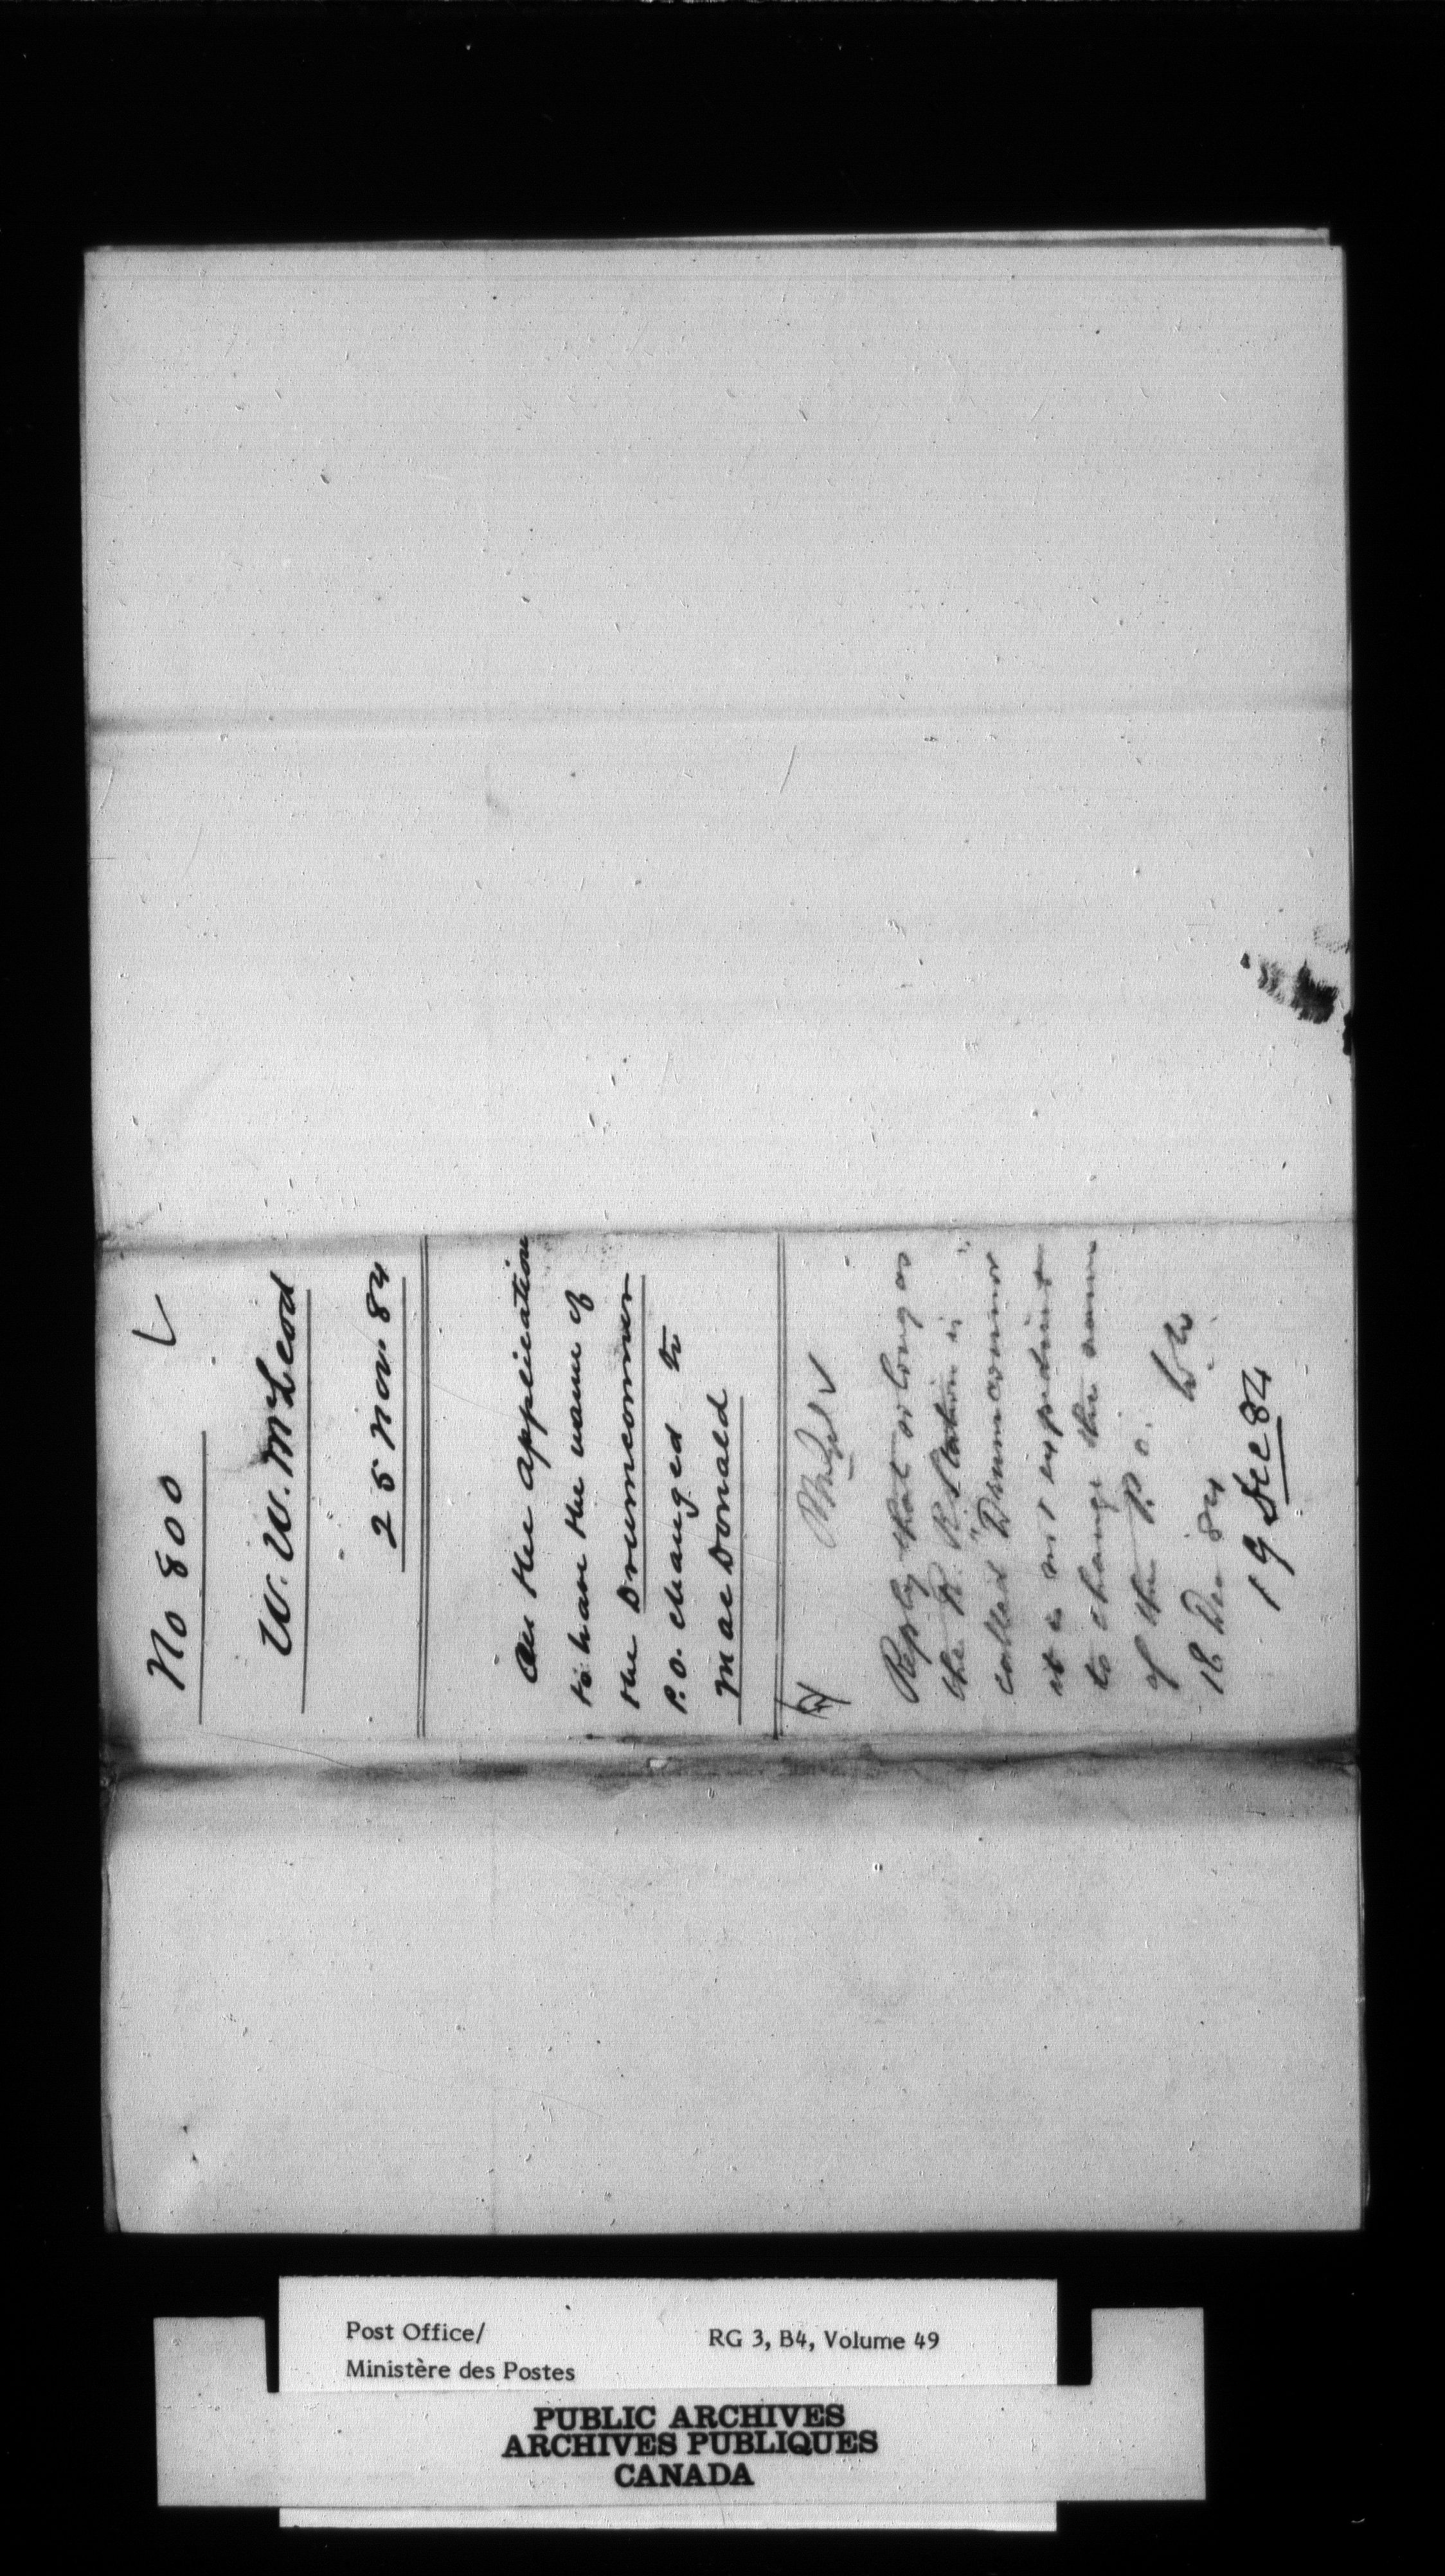 No 800
W. W. McLeod
25 Nov. 84
the application
to have the name of
the Drumconnor
P.O. changed to
MacDonald
Reply that as long as
the R. R. Station is
called "Drumconnor"
it is not expedient
to change the name
of the P.O.
18 Dec 84
19 Dec 84
Post Office/ RG 3, B4, Volume 49
Ministère des Postes
PUBLIC ARCHIVES
ARCHIVES PUBLIQUES
CANADA